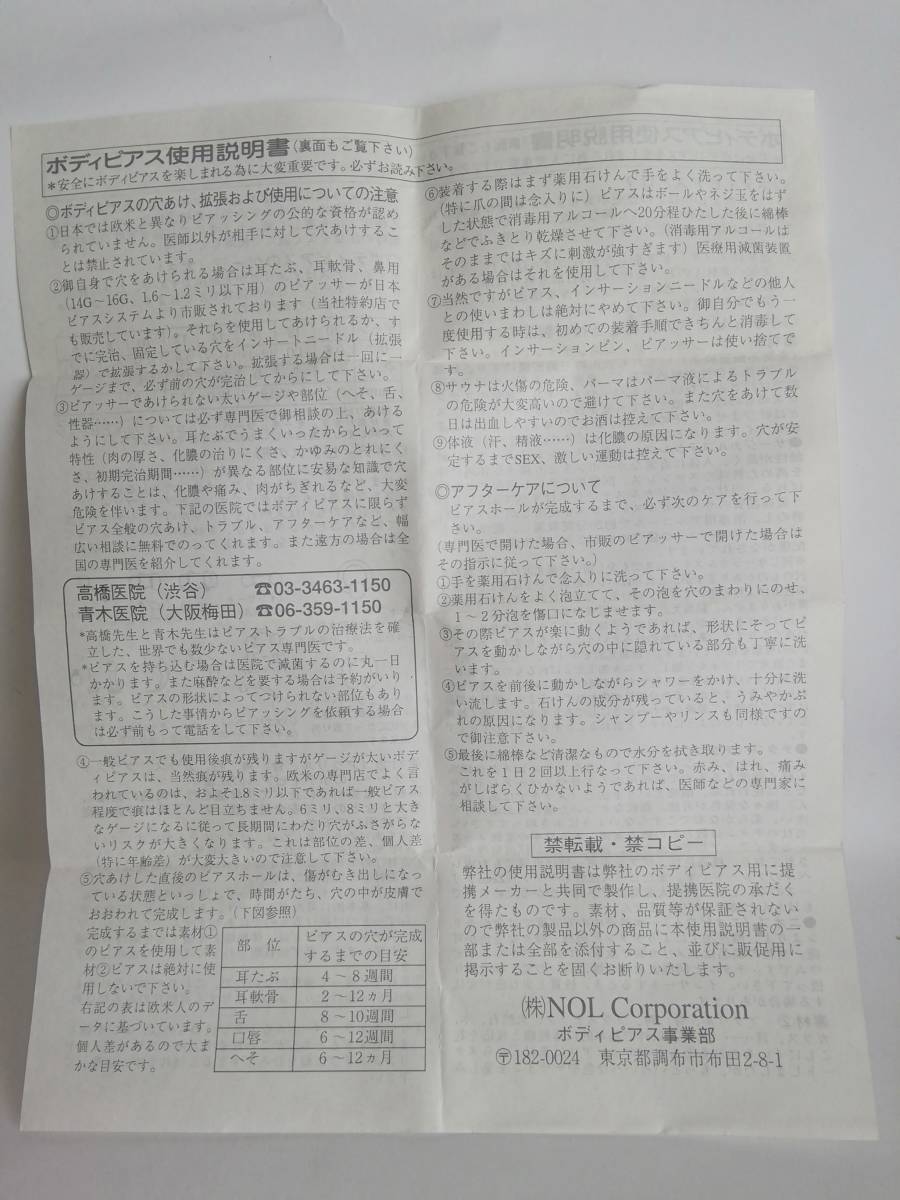 ボディピアス使用説明書(裏面もご覧下さい)
*安全にボディピアスを楽しまれる為に大変重要です。必ずお読み下さい。
◎ボディピアスの穴あけ、拡張および使用についての注意
①日本では欧米と異なりピアッシングの公的な資格が認め
られていません。医師以外が相手に対して穴あけするこ
とは禁止されています。
②御自身で穴をあけられる場合は耳たぶ、耳軟骨、鼻用
(14G～16G、1.6～1.2ミリ以下用)のピアッサーが日本
ピアスシステムより市販されております(当社特約店で
も販売しています)。それらを使用してあけられるか、す
でに完治、固定している穴をインサートニードル(拡張
器)で拡張するかして下さい。拡張する場合は一回に一
ゲージまで、必ず前の穴が完治してからにして下さい。
③ピアッサーであけられない太いゲージや部位(へそ、舌、
性器……)については必ず専門医で御相談の上、あける
ようにして下さい。耳たぶでうまくいったからといって
特性(肉の厚さ、化膿の治りにくさ、かゆみのとれにく
さ、初期完治期間……)が異なる部位に安易な知識で穴
あけすることは、化膿や痛み、肉がちぎれるなど、大変
危険を伴います。下記の医院ではボディピアスに限らず
ピアス全般の穴あけ、トラブル、アフターケアなど、幅
広い相談に無料でのってくれます。また遠方の場合は全
国の専門医を紹介してくれます。
高橋医院(渋谷) ☎03-3463-1150
青木医院(大阪梅田) ☎06-359-1150
*高橋先生と青木先生はピアストラブルの治療法を確
立した、世界でも数少ないピアス専門医です。
*ピアスを持ち込む場合は医院で滅菌するのに丸一日
かかります。また麻酔などを要する場合は予約がいり
ます。ピアスの形状によってつけられない部位もあり
ます。こうした事情からピアッシングを依頼する場合
は必ず前もって電話をして下さい。
④一般ピアスでも使用後痕が残りますがゲージが太いボデ
ィピアスは、当然痕が残ります。欧米の専門店でよく言
われているのは、およそ1.8ミリ以下であれば一般ピアス
程度で痕はほとんど目立ちません。6ミリ、8ミリと大き
なゲージになるに従って長期間にわたり穴がふさがらな
いリスクが大きくなります。これは部位の差、個人差
(特に年齢差)が大変大きいので注意して下さい。
⑤穴あけした直後のピアスホールは、傷がむき出しになっ
ている状態といっしょで、時間がたち、穴の中が皮膚で
おおわれて完成します。(下図参照)
完成するまでは素材①
のピアスを使用して素
材②ピアスは絶対に使
用しないで下さい。
右記の表は欧米人のデ
ータに基づいています。
個人差があるので大ま
かな目安です。
部位 ピアスの穴が完成
するまでの目安
耳たぶ 4～8週間
耳軟骨 2～12ヵ月
舌 8～10週間
口唇 6～12週間
へそ 6～12ヵ月
⑥装着する際はまず薬用石けんで手をよく洗って下さい。
(特に爪の間は念入りに)ピアスはボールやネジ玉をはず
した状態で消毒用アルコールへ20分程ひたした後に綿棒
などでふきとり乾燥させて下さい。(消毒用アルコールは
そのままではキズに刺激が強すぎます)医療用滅菌装置
がある場合はそれを使用して下さい。
⑦当然ですがピアス、インサーションニードルなどの他人
との使いまわしは絶対にやめて下さい。御自分でもう一
度使用する時は、初めての装着手順できちんと消毒して
下さい。インサーションピン、ピアッサーは使い捨てで
す。
⑧サウナは火傷の危険、パーマはパーマ液によるトラブル
の危険が大変高いので避けて下さい。また穴をあけて数
日は出血しやすいのでお酒は控えて下さい。
⑨体液(汗、精液……)は化膿の原因になります。穴が安
定するまでSEX、激しい運動は控えて下さい。
◎アフターケアについて
ピアスホールが完成するまで、必ず次のケアを行って下
さい。
(専門医で開けた場合、市販のピアッサーで開けた場合は
その指示に従って下さい。)
①手を薬用石けんで念入りに洗って下さい。
②薬用石けんをよく泡立てて、その泡を穴のまわりにのせ、
1～2分泡を傷口になじませます。
③その際ピアスが楽に動くようであれば、形状にそってピ
アスを動かしながら穴の中に隠れている部分も丁寧に洗
います。
④ピアスを前後に動かしながらシャワーをかけ、十分に洗
い流します。石けんの成分が残っていると、うみやかぶ
れの原因になります。シャンプーやリンスも同様ですの
で御注意下さい。
⑤最後に綿棒など清潔なもので水分を拭き取ります。
これを1日2回以上行なって下さい。赤み、はれ、痛み
がしばらくひかないようであれば、医師などの専門家に
相談して下さい。
禁転載・禁コピー
弊社の使用説明書は弊社のボディピアス用に提
携メーカーと共同で製作し、提携医院の承だく
を得たものです。素材、品質等が保証されない
ので弊社の製品以外の商品に本使用説明書の一
部または全部を添付すること、並びに販促用に
掲示することを固くお断りいたします。
㈱NOL Corporation
ボディピアス事業部
〒182-0024 東京都調布市布田2-8-1